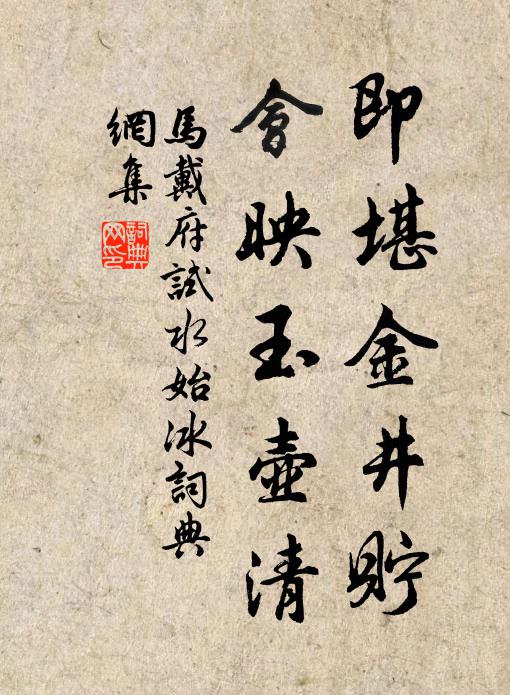 即堪金井貯
會映玉壺清
馬戴府試水始冰詞典
網集
詞典
网印